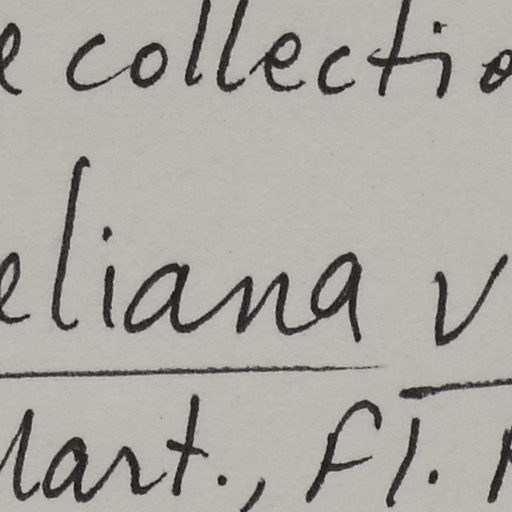 e collectio
eliana v
Mart., Fl.